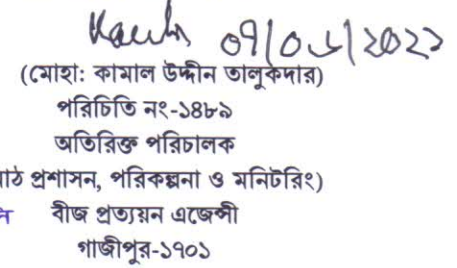 (মোহা: কামাল উদ্দীন তালুকদার)
পরিচিতি নং-১৪৮৯
অতিরিক্ত পরিচালক
প্রশাসন, পরিকল্পনা ও মনিটরিং)
বীজ প্রত্যয়ন এজেন্সী
গাজীপুর-১৭০১